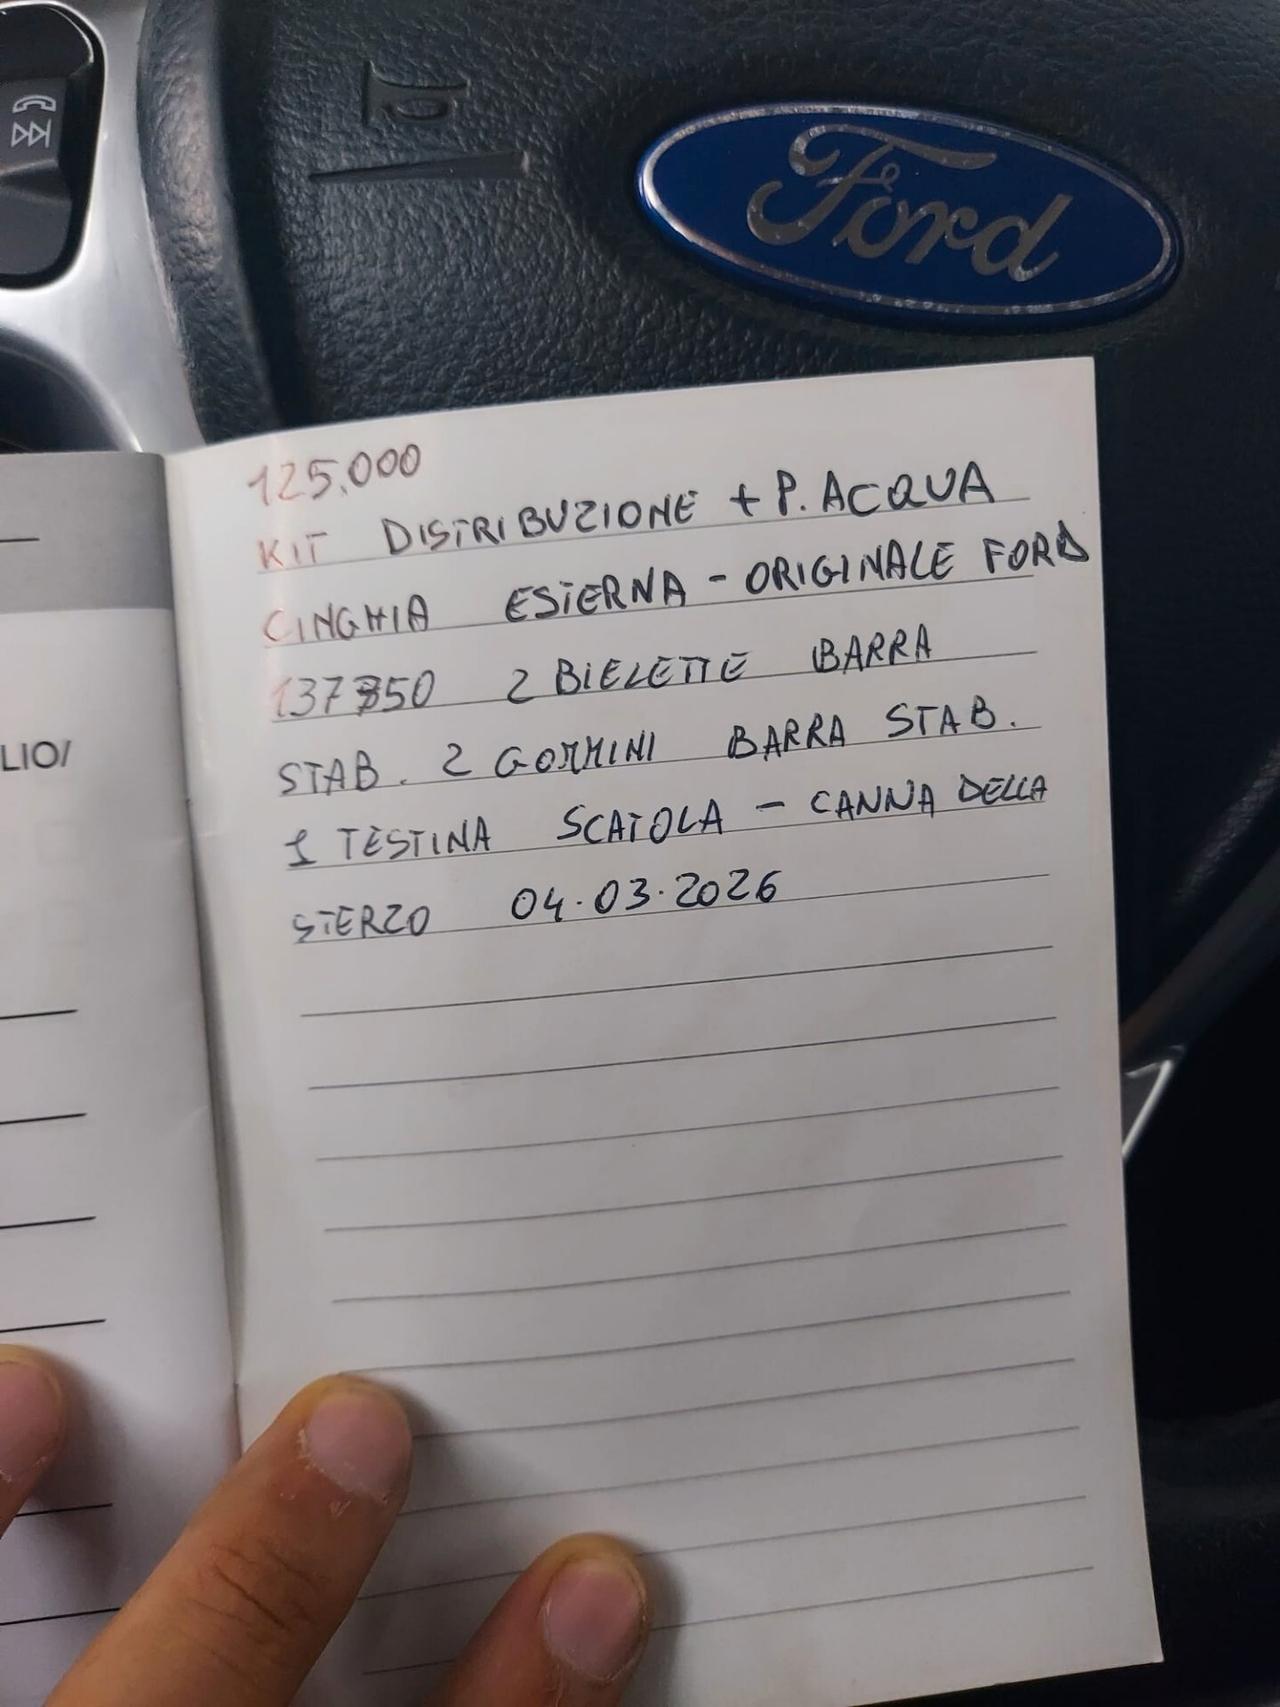 Ford
125.000
KIT DISTRIBUZIONE + P. ACQUA
CINGHIA ESTERNA - ORIGINALE FORD
137850 2 BIELETTE BARRA
STAB. 2 GOMMINI BARRA STAB.
1 TESTINA SCATOLA - CANNA DELLA
STERZO 04.03.2026
LIO/